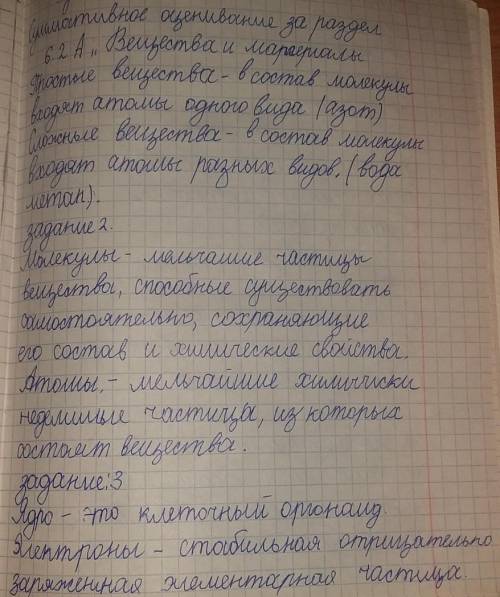 Суммативное оценивание за раздел
6.2 А „ Вещества и материалы
Простые вещества - в состав молекулы
входят атомы одного вида (азот)
Сложные вещества - в состав молекулы
входят атомы разных видов. (вода
метан).
задание 2.
Молекулы - мельчашие частицы
вещества, способные существовать
самостоятельно, сохраняющие
его состав и химические свойства.
Атомы, - мельчайшие химичиски
неделимые частицы, из которых
состоят вещества.
задание:3
Ядро - это клеточный оргоноид.
Электроны - стабильная отрицательно
заряженная элементарная частица.